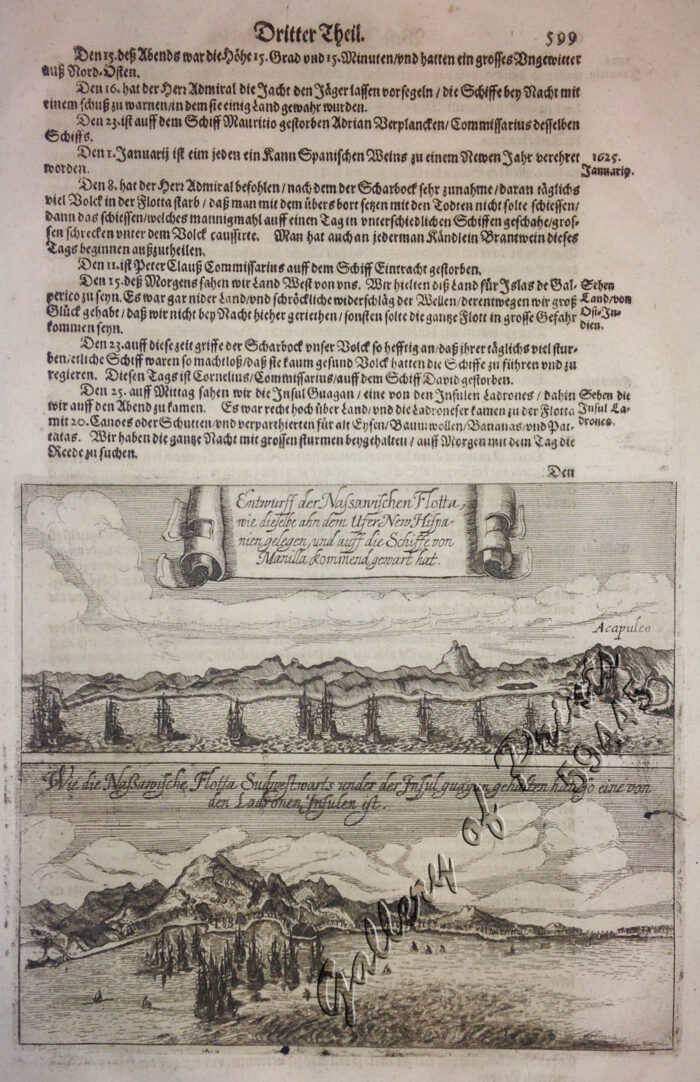 Dritter Theil. 599
Den 15. deß Abends war die Höhe 15. Grad vnd 15. Minuten/vnd hatten ein grosses Vngewitter
auß Nord-Osten.
Den 16. hat der Herr Admiral die Jacht den Jäger lassen vorsegeln / die Schiffe bey Nacht mit
einem schuß zu warnen/in dem sie einig Land gewahr wurden.
Den 23. ist auff dem Schiff Mauritio gestorben Adrian Verplancken/Commissarius desselben
Schiffs.
Den 1. Januarij ist eim jeden ein Kann Spanischen Weins zu einem Newen Jahr verehret
worden.
1625.
Januarij.
Den 8. hat der Herr Admiral befohlen / nach dem der Scharbock sehr zunahme / daran täglichs
viel Volck in der Flotta starb / daß man mit dem übers bort setzen mit den Todten nicht solte schiessen/
dann das schiessen/welches mannigmahl auff einen Tag in vnterschiedlichen Schiffen geschahe/gros-
sen schrecken vnter dem Volck caussirte. Man hat auch an jederman Kändlein Brantwein dieses
Tags beginnen außzutheilen.
Den 11. ist Peter Clauß Commissarius auff dem Schiff Eintracht gestorben.
Den 15. deß Morgens sahen wir Land West von vns. Wir hielten diß Land für Islas de Gal-
perico zu seyn. Es war gar nider Land/vnd schröckliche widerschläg der Wellen/derentwegen wir groß
Glück gehabt / daß wir nicht bey Nacht hieher geriethen / sonsten solte die gantze Flott in grosse Gefahr
kommen seyn.
Sehen
Land/von
Ost-In-
dien.
Den 23. auff diese zeit griffe der Scharbock vnser Volck so hefftig an/daß ihrer täglichs viel stur-
ben/etliche Schiff waren so machtloß/daß sie kaum gesund Volck hatten die Schiffe zu führen vnd zu
regieren. Diesen Tags ist Cornelius/Commissarius/auff dem Schiff David gestorben.
Den 25. auff Mittag sahen wir die Insul Guagan / eine von den Insulen Ladrones / dahin
wir auff den Abend zu kamen. Es war recht hoch über Land/vnd die Ladroneser kamen zu der Flotta
mit 20. Canoes oder Schutten/vnd verparthierten für alt Eysen/Baumwollen/Bananas/vnd Pat-
tatas. Wir haben die gantze Nacht mit grossen sturmen beygehalten / auff Morgen mit dem Tag die
Reede zu suchen.
Sehen die
Insul La-
drones.
Den
Entwurff der Nassawischen Flotta,
wie dieselbe ahn dem Ufer New Hispa-
nien gelegen, und auff die Schiffe von
Manilla kommend gewart hat.
Acapulco
Wie die Naßawische Flotta Sudwestwarts under der Insul guagan gehalten hat, so eine von
den Ladronen Insulen ist.
Gallery of Prints
59445